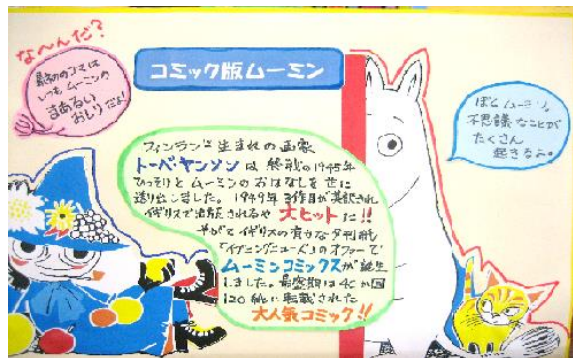 な〜んだ?
最初のコマは
いつも ムーミンの
まあるい
おしりだよ!
コミック版ムーミン
ぼく ムーミン。
不思議なことが
たくさん
起きるよ。
フィンランド生まれの画家
トーベ・ヤンソンは 終戦の1945年
ひっそりと ムーミンのおはなしを世に
送り出しました。1949年 3作目が英訳され
イギリスで出版されるや 大ヒットに!!
やがてイギリスの有力な夕刊紙
「イブニングニューズ」のオファーで
ムーミンコミックスが誕生
しました。最盛期は40か国
120紙に転載された
大人気コミック!!